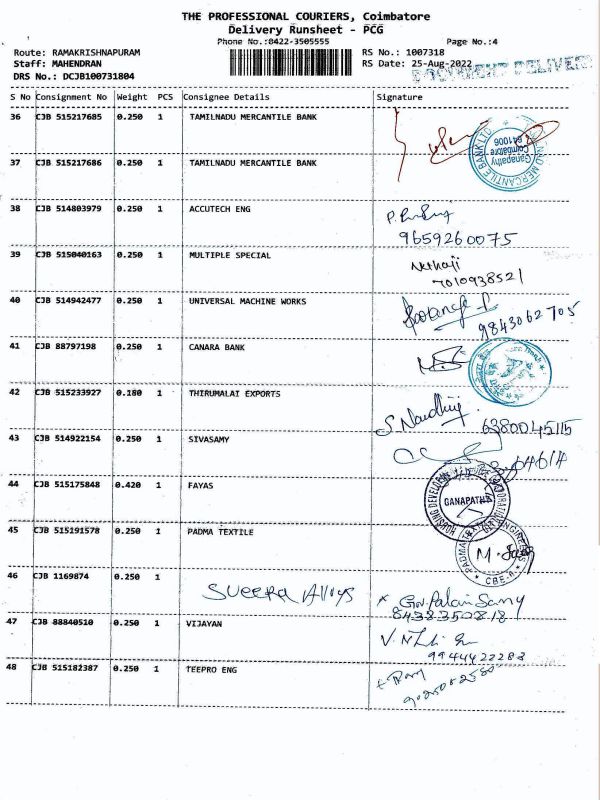 THE PROFESSIONAL COURIERS, Coimbatore
Delivery Runsheet - PCG
Phone No.:0422-3505555 Page No.:4
Route: RAMAKRISHNAPURAM RS No.: 1007318
Staff: MAHENDRAN RS Date: 25-Aug-2022
DRS No.: DCJB100731804
S No Consignment No Weight PCS Consignee Details Signature
36 CJB 515217685 0.250 1 TAMILNADU MERCANTILE BANK
Ganapathy
Coimbatore
641006
37 CJB 515217686 0.250 1 TAMILNADU MERCANTILE BANK
38 CJB 514803979 0.250 1 ACCUTECH ENG
9659260075
39 CJB 515040163 0.250 1 MULTIPLE SPECIAL
Nethaji
7010938521
40 CJB 514942477 0.250 1 UNIVERSAL MACHINE WORKS
9843062705
41 CJB 88797198 0.250 1 CANARA BANK
42 CJB 515233927 0.180 1 THIRUMALAI EXPORTS
6380045115
43 CJB 514922154 0.250 1 SIVASAMY
44 CJB 515175848 0.420 1 FAYAS
GANAPATHY
45 CJB 515191578 0.250 1 PADMA TEXTILE
46 CJB 1169874 0.250 1
8438350818
47 CJB 88840510 0.250 1 VIJAYAN
9944422283
48 CJB 515182387 0.250 1 TEEPRO ENG